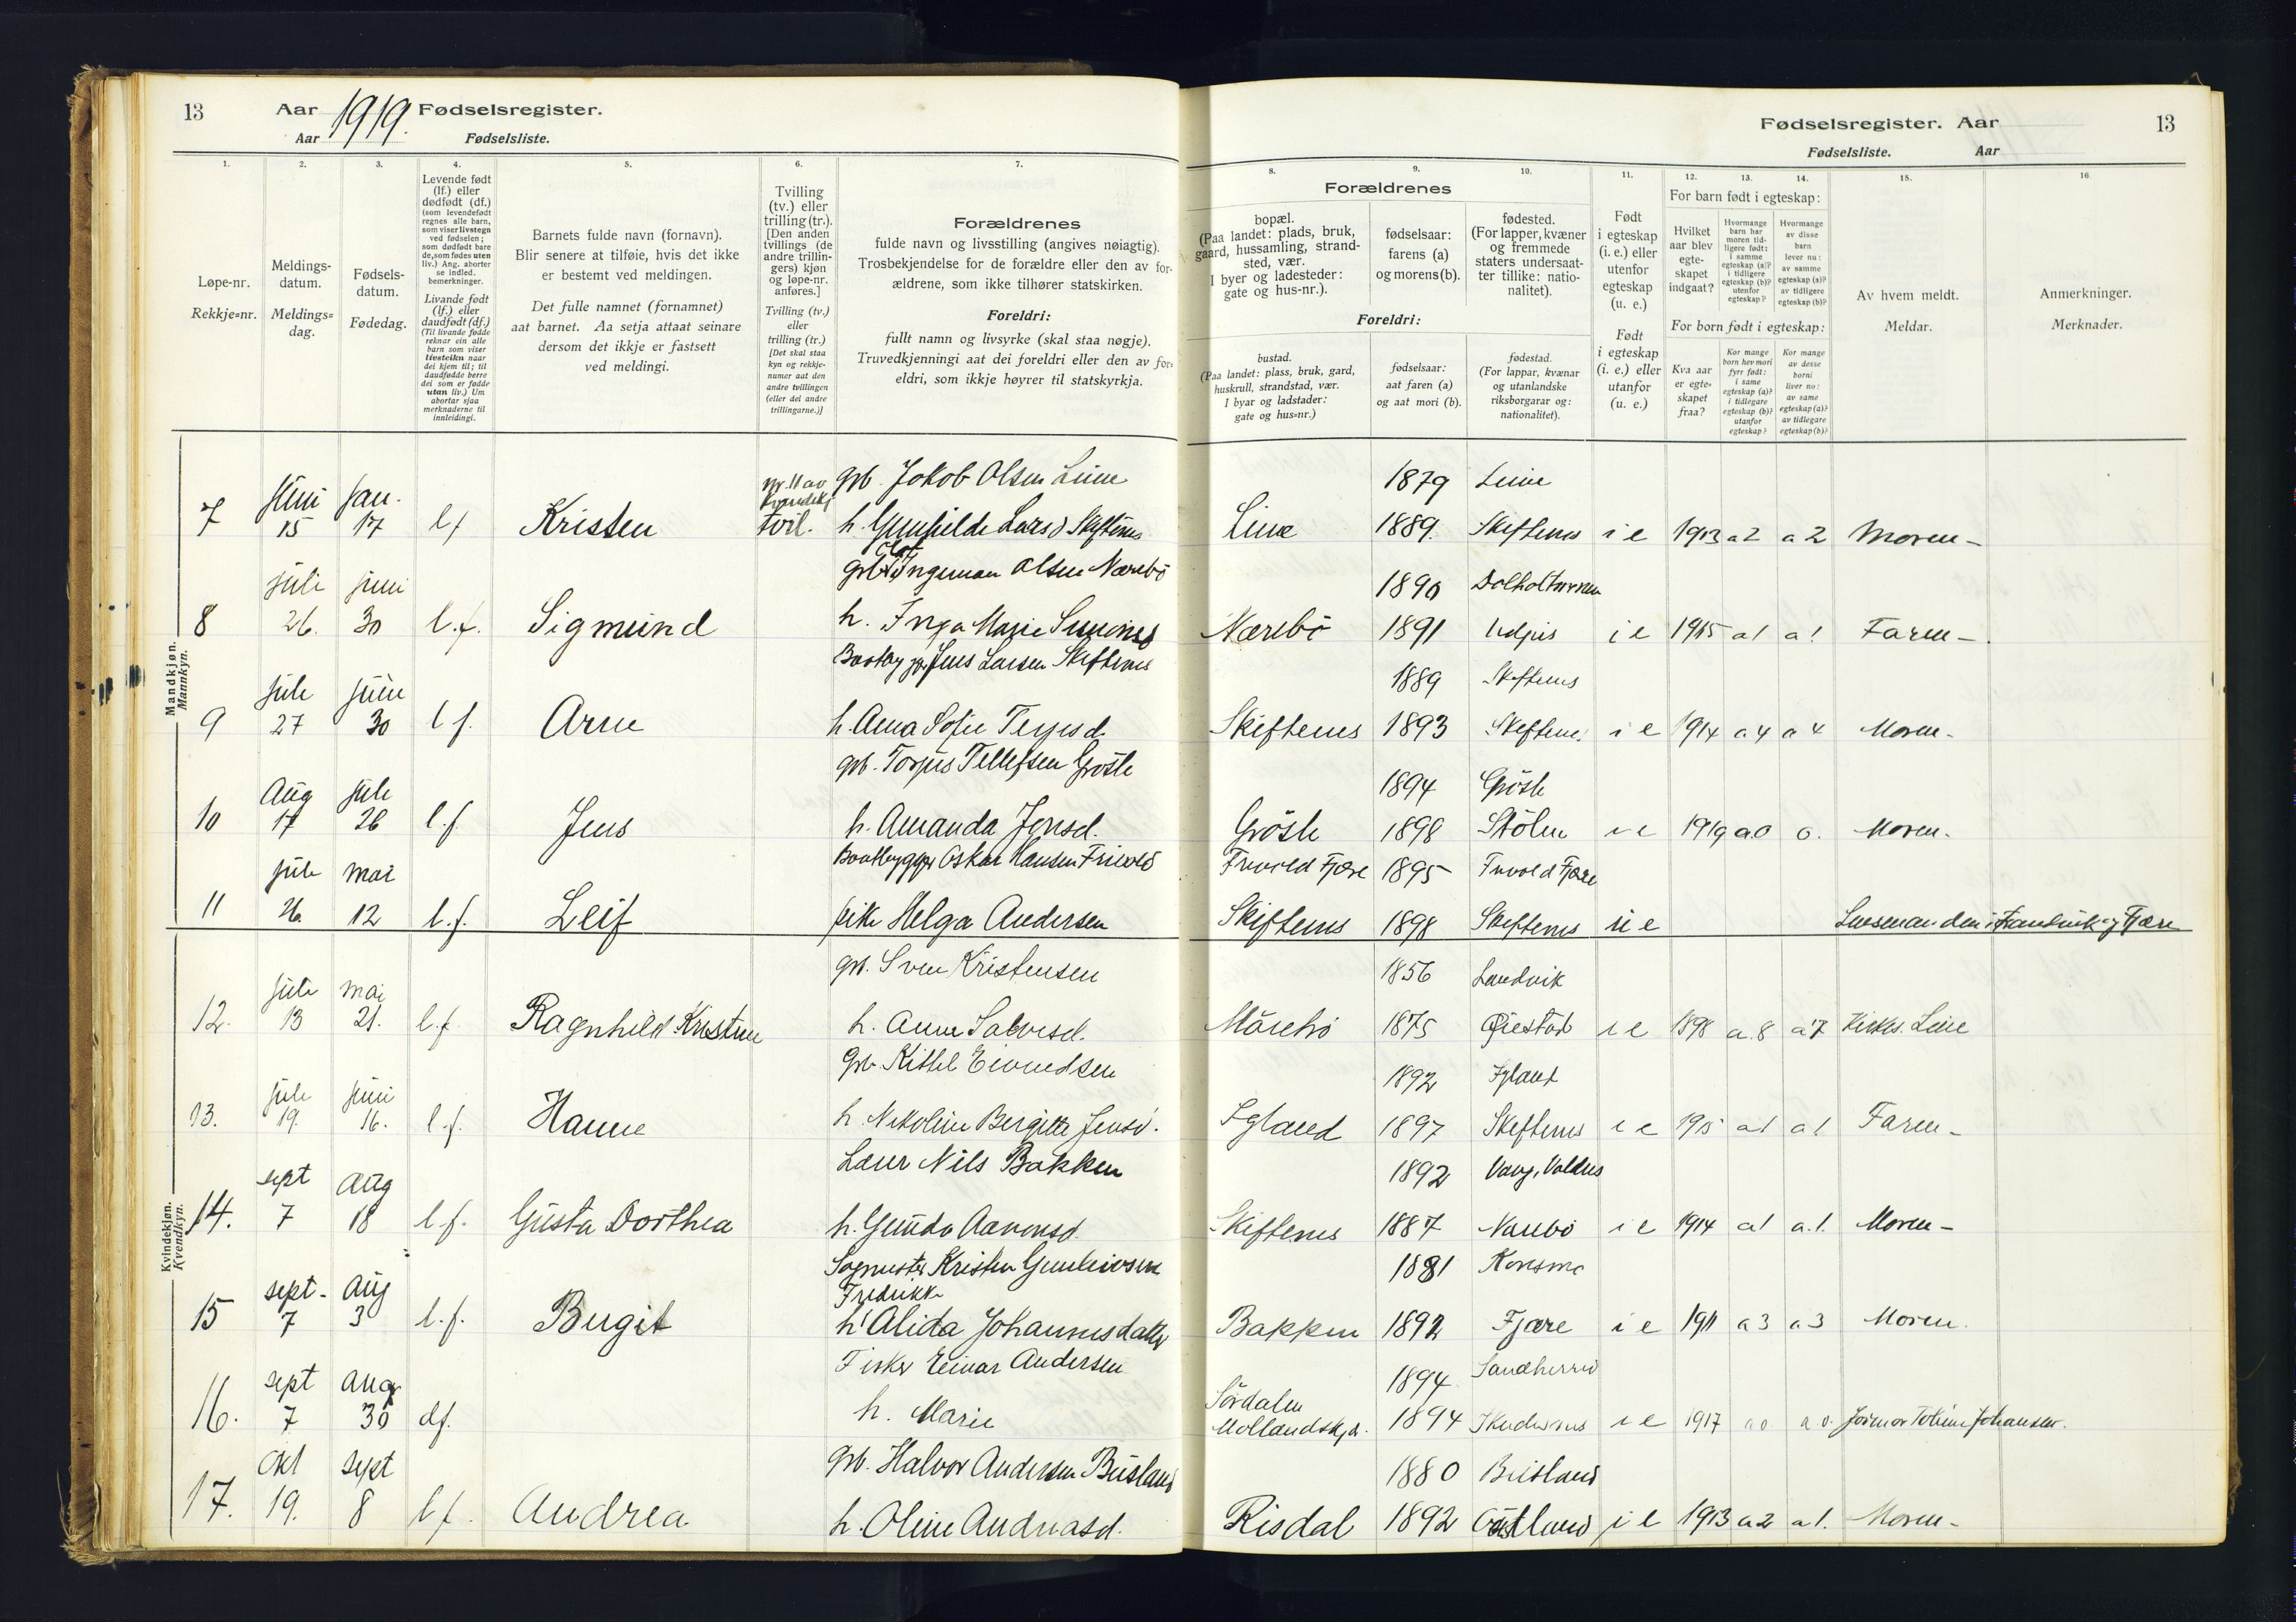 13 Aar 1919. Fødselsregister.
Aar Fødselsliste.
Fødselsregister. Aar 13
Fødselsliste. Aar
1. 2. 3. 4. 5. 6. 7.
8. 9. 10. 11. 12. 13. 14. 15. 16.
Løpe-nr.
Rekkje=nr.
Meldings-
datum.
Meldings=
dag.
Fødsels-
datum.
Fødedag.
Levende født
(lf.) eller
dødfødt (df.)
(som levendefødt
regnes alle barn,
som viser livstegn
ved fødselen;
som dødfødt bare
de, som fødes uten
liv.) Ang. aborter
se indled.
bemerkninger.
Livande født
(lf.) eller
daudfødt (df.)
(Til livande fødde
reknar ein alle
barn som viser
livsteikn naar
dei kjem til; til
daudfødde berre
dei som er fødde
utan liv.) Um
abortar sjaa
merknaderne til
innleidingi.
Barnets fulde navn (fornavn).
Blir senere at tilføie, hvis det ikke
er bestemt ved meldingen.
Det fulle namnet (fornamnet)
aat barnet. Aa setja attaat seinare
dersom det ikkje er fastsett
ved meldingi.
Tvilling
(tv.) eller
trilling (tr.).
[Den anden
tvillings (de
andre trillin-
gers) kjøn
og løpe-nr.
anføres.]
Tvilling (tv.)
eller
trilling (tr.)
[Det skal staa
kyn og rekkje-
numer aat den
andre tvillingen
(eller dei andre
trillingarne.)]
Forældrenes
fulde navn og livsstilling (angives nøiagtig).
Trosbekjendelse for de forældre eller den av for-
ældrene, som ikke tilhører statskirken.
Foreldri:
fullt namn og livsyrke (skal staa nøgje).
Truvedkjenningi aat dei foreldri eller den av for-
eldri, som ikkje høyrer til statskyrkja.
Forældrenes
bopæl.
(Paa landet: plads, bruk,
gaard, hussamling, strand-
sted, vær.
I byer og ladesteder:
gate og hus-nr.).
fødselsaar:
farens (a)
og morens (b).
fødested.
(For lapper, kvæner
og fremmede
staters undersaat-
ter tillike: natio-
nalitet).
Foreldri:
bustad.
(Paa landet: plass, bruk, gard,
huskrull, strandstad, vær.
I byar og ladstader:
gate og hus-nr.)
fødselsaar:
aat faren (a)
og aat mori (b).
fødestad.
(For lappar, kvænar
og utanlandske
riksborgarar og:
nationalitet).
Født
i egteskap
(i. e.) eller
utenfor
egteskap
(u. e.)
Født
i egteskap
(i. e.) eller
utanfor
(u. e.)
For barn født i egteskap:
Hvilket
aar blev
egte-
skapet
indgaat?
Hvormange
barn har
moren tid-
ligere født:
i samme
egteskap (a)?
i tidligere
egteskap (b)?
utenfor
egteskap?
Hvormange
av disse
barn
lever nu:
av samme
egteskap (a)?
av tidligere
egteskap (b)?
For born født i egteskap:
Kva aar
er egte=
skapet
fraa?
Kor mange
born hev mori
fyrr født:
i same
egteskap (a)?
i tidlegare
egteskap (b)?
utanfor
egteskap?
Kor mange
av desse
borni
liver no:
av same
egteskap (a)?
av tidlegare
egteskap (b)?
Av hvem meldt.
Meldar.
Anmerkninger.
Merknader.
Mandkjøn.
Mannkyn.
juni jan. nr. 11 av grb. Jokob Olsen Leine 1879 Leine
7 15 17 l f Kristen tvil. h. Gunhilde Larsd Skiftenes 1889. Skiftenes i e 1913 a 2 a 2 Moren-
Olaf
juli juni grb. Ingeman Olsen Nærebö 1890
8 26. 30 l. f. Sigmund h. Inga Marie Nærebö 1891 i e 1915 a 1 a 1 Faren-
juli juni Jens Larsen Skiftenes 1889 Skiftenes
9 27 30 l f. Arne h. Anna Sofie Terjesd. Skiftenes 1893 Skiftenes i e 1914 a 4 a 4 Moren-
grb. Torjus Tellefsen Grösle
Aug juli 1894 Grösle
10 17 26 l. f. Jens h. Amanda Jensd. Grösle 1898 Stölen i e 1919 a.0 0. Moren-
juli mai Baatbygger Oskar Hansen Frivold Frivold Fjære 1895 Frivold Fjære
11 26. 12 l. f. Leif pike Helga Andersen Skiftenes 1898 Skiftenes u e Lensmanden i Landvik og Fjære
Kvindekjøn.
Kvendkyn.
juli mai grb. Sven Kristensen 1856 Landvik
12. 13 21. l. f. Ragnhild Kristine h. Anne Salvesd. 1875 Øiestad i e 1898 a. 8 a 7 Kirkes. Leire
juli juni Grb. Kittel Eivindsen 1892 Igland
13. 19. 16. l. f. Hanne h. Nikoline Bergitte Jensd. Igland 1897 Skiftenes i e 1915 a 1 a 1 Faren-
sept Aug Lærer Nils Bakken 1892 Vang, Valdres
14. 7 18 l. f. Gusta Dorthea h. Gunda Aanonsd. Skiftenes 1887 Nærebö i e 1914 a 1 a. 1. Moren-
sept- Aug Kristen Gunleivsen 1881 Konsmo
Fredrikke
15 7 3 l. f. Birgit h. Alida Johannesdatter Bakken 1892 Fjære i e 1911 a 3 a 3 Moren.
sept Aug Fisker Einar Andersen 1894 Sandherred
16. 7 30 df. h. Marie Sördalen Mollandskj. 1894 i e 1917 a 0 a 0. Jormor Johansen.
Okt sept grb. Halvor Andersen Busland 1880 Busland
17. 19. 8 l f. Andrea h. Oline Andreasd. Risdal 1892 i e 1913 a 2 a 1. Moren-